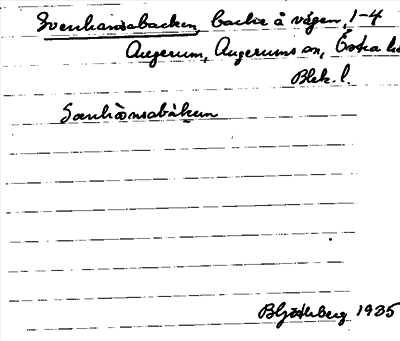 Svenhansabacken, backe å vägen, 1-4
Augerum, Augerums sn, Östra hd
Blek. l.
Sвenhànsabàkεn
B Hjöthberg 1935